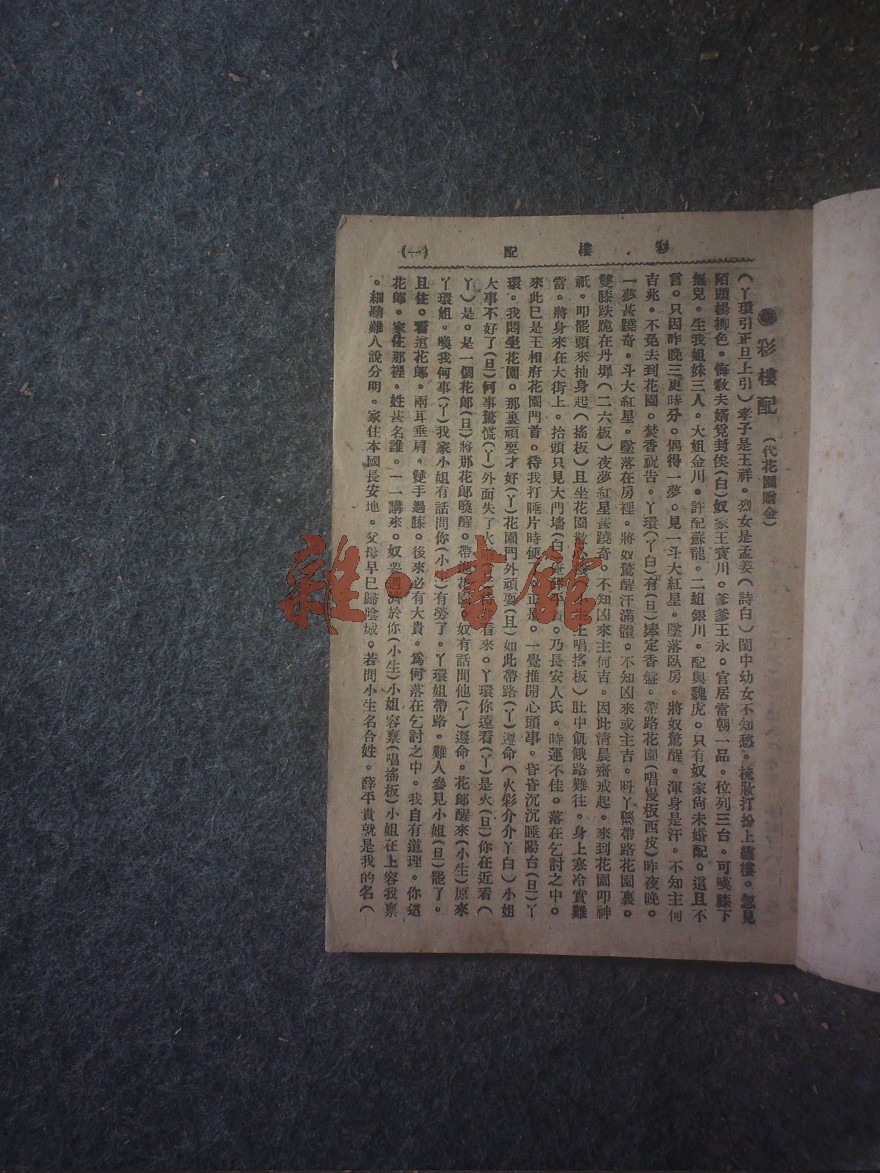 彩樓配
(一)
彩樓配 (代花園贈金)
(丫環引正旦上引)孝子是王祥。烈女是孟姜(詩白)閨中幼女不知愁。梳妝打扮上繡樓。忽見
陌頭楊柳色。悔敎夫婿覓封侯(白)奴家王寶川。爹爹王永。官居當朝一品。位列三台。可嘆膝下
無兒。生我姐妹三人。大姐金川。許配蘇龍。二姐銀川。配與魏虎。只有奴家尙未婚配。這且不
言。只因昨晚三更時分。偶得一夢。見一斗大紅星。墜落臥房。將奴驚醒。渾身是汗。不知主何
吉兆。不免去到花園。焚香祝吿。丫環(丫白)有(旦)捧定香盤。帶路花園(唱慢板西皮)昨夜晚。
一夢甚蹺奇。斗大紅星。墜落在房裡。將奴驚醒汗滿體。不知凶來或主吉。呌丫環帶路花園裏。
雙膝跌跪在丹墀(二六板)夜夢紅星甚蹺奇。不知凶來主何吉。因此淸晨齋戒起。來到花園叩神
祇。叩罷頭來抽身起(搖板)且坐花園 上唱搖板)肚中飢餓路難往。身上寒冷實難
當。將身來在大街上。抬頭只見大門墻(白) 乃長安人氏。時運不佳。落在乞討之中。
來此已是王相府花園門首。待我打睡片時便 正是。一覺推開心頭事。昏昏沉沉睡陽台(旦)丫
環。我悶坐花園。那裏頑耍才好(丫)花園門外頑耍(旦)如此帶路(丫)遵命(火彩介介丫白)小姐
大事不好了(旦)何事驚慌(丫)外面失了火 看來。丫環你遠看(丫)是火(旦)你在近看(
丫)是。是一個花郎(旦)將那花郎喚醒。帶進花園。奴有話問他(丫)遵命。花郎醒來(小生)原來
丫環姐。喚我何事(丫)我家小姐有話問你(小生)有勞了。丫環姐帶路。難人參見小姐(旦)罷了。
且住。看這花郎。兩耳垂肩。雙手過膝。後來必有大貴。爲何落在乞討之中。我自有道理。你這
花郎。家住那裡。姓甚名誰。一一講來。奴要週濟於你(小生)小姐容禀(唱搖板)小姐在上容我禀
。細聽難人說分明。家住本國長安地。父母早已歸陰城。若問小生名合姓。薛平貴就是我的名(
雜·書館